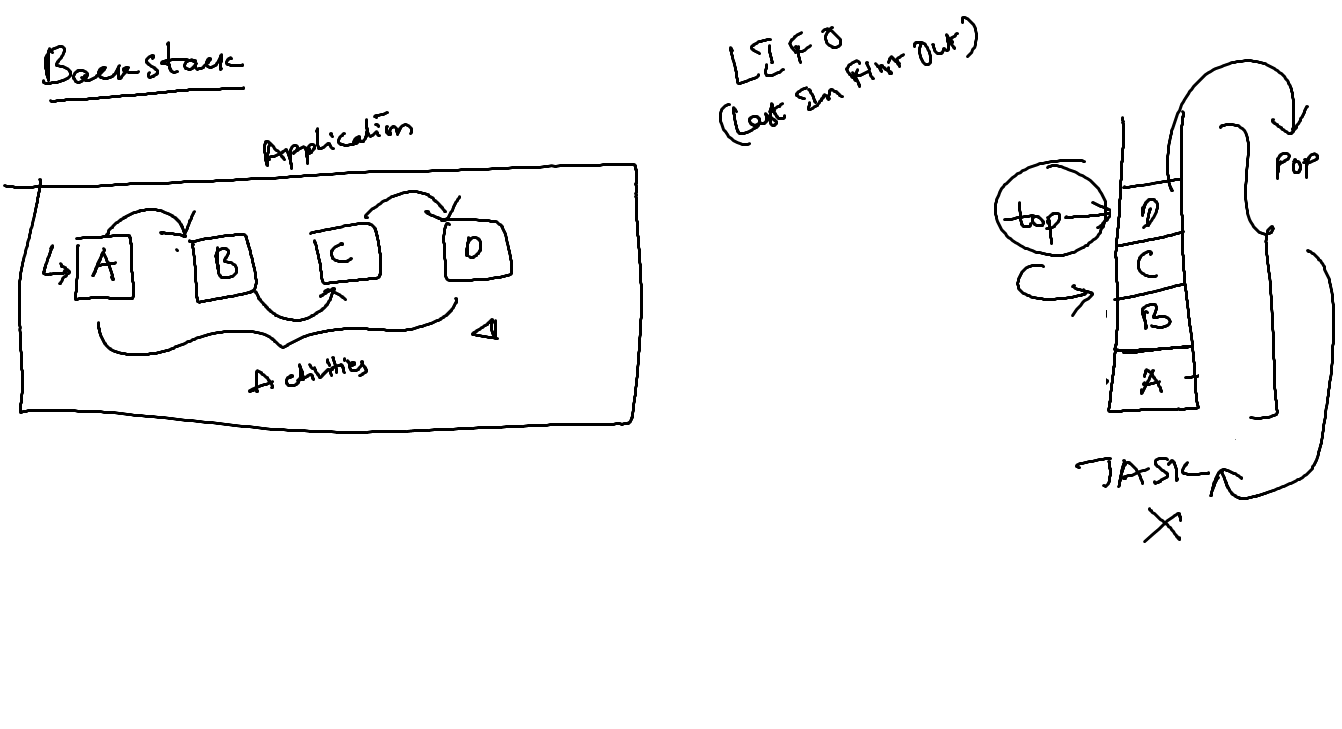 Backstack
Application
A
B
C
D
Activities
LIFO
(Last In First Out)
POP
top
D
C
B
A
TASK
X